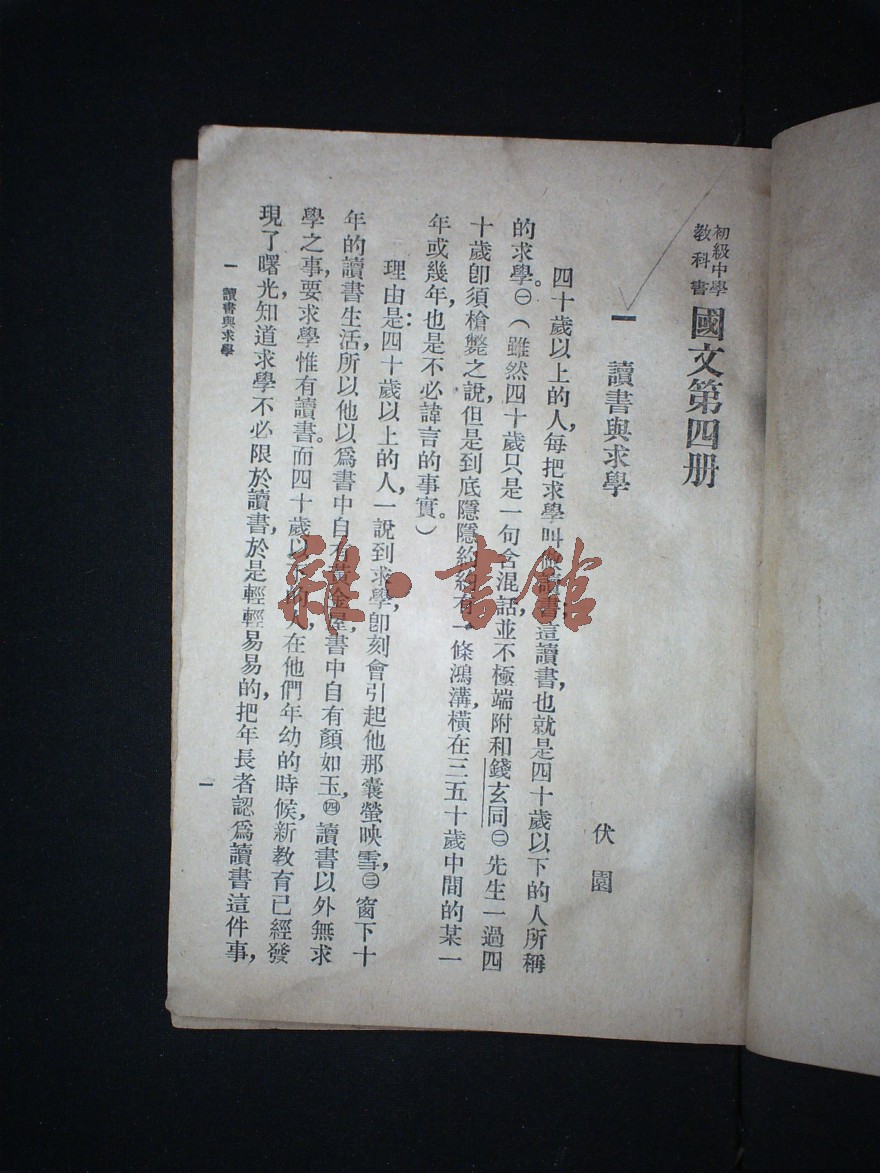 初級中學
教科書
國文第四册
一　讀書與求學
伏園
四十歲以上的人，每把求學叫做讀書；這讀書，也就是四十歲以下的人所稱
的求學。㊀（雖然四十歲只是一句含混話，並不極端附和錢玄同㊁先生一過四
十歲卽須槍斃之說，但是到底隱隱約約有一條鴻溝，橫在三五十歲中間的某一
年或幾年，也是不必諱言的事實。）
理由是：四十歲以上的人，一說到求學，卽刻會引起他那囊螢映雪，㊂窗下十
年的讀書生活，所以他以爲書中自有黃金屋，書中自有顏如玉，㊃讀書以外無求
學之事，要求學惟有讀書。而四十歲以下的人，在他們年幼的時候，新教育已經發
現了曙光，知道求學不必限於讀書，於是輕輕易易的，把年長者認爲讀書這件事，
一　讀書與求學
一
雜·書館